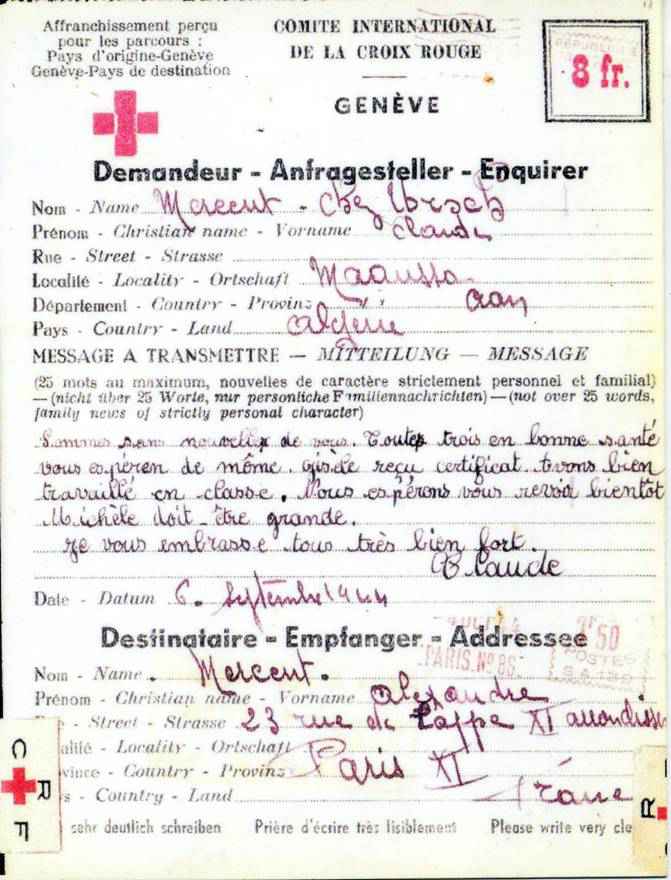 Affranchissement perçu
pour les parcours :
Pays d'origine-Genève
Genève-Pays de destination
COMITE INTERNATIONAL
DE LA CROIX ROUGE
GENÈVE
8 fr.
Demandeur - Anfragesteller - Enquirer
Nom - Name Mercent - chez
Prénom - Christian name - Vorname Claude
Rue - Street - Strasse
Localité - Locality - Ortschaft Maoussa
Département - County - Provinz Oran
Pays - Country - Land Algérie
MESSAGE A TRANSMETTRE — MITTEILUNG — MESSAGE
(25 mots au maximum, nouvelles de caractère strictement personnel et familial)
—(nicht über 25 Worte, nur personliche Familiennachrichten)—(not over 25 words,
family news of strictly personal character)
Sommes sans nouvelles de vous. Toutes trois en bonne santé
vous espéren de même. Gisèle reçu certificat. Avons bien
travaillé en classe. Nous espérons vous revoir bientôt
Michèle doit être grande.
Je vous embrasse tous très bien fort.
Claude
Date - Datum 6. Septembre 1944
Destinataire - Empfanger - Addressee
PARIS. No 86.
50
POSTES
Nom - Name. Mercent.
Prénom - Christian name - Vorname Alexandre
- Street - Strasse 23 rue de Lappe XI arrondiss
alité - Locality - Ortschaft
vince - Country - Provinz Paris XI
s - Country - Land France
C R F
R
sehr deutlich schreiben Prière d'écrire très lisiblement Please write very cle